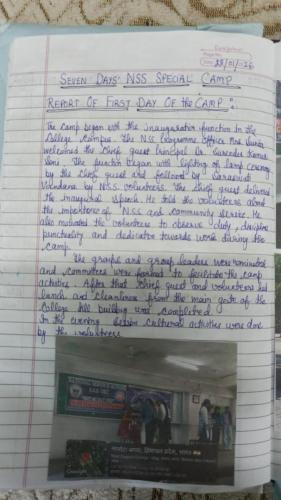 Date 28/01/26
SEVEN DAYS' NSS SPECIAL CAMP
REPORT OF FIRST DAY OF the CAMP ":
The camp began with the inauguration function in the
College Campus. The NSS Programme Officer Mrs
welcomed the Chief guest Principal Dr. Surender Kumar
Soni. The function began with lighting of lamp ceremony
by the chief guest and followed by Saraswati
Vandana by N.S.S. volunteers. The chief guest delivered
the inaugural speech. He told the volunteers about
the importance of N.S.S and community service. He
also motivated the volunteers to observe duty, discipline
punctuality and dedication towards work during the
camp.
The groups and group leaders were nominated
and committees were formed to facilitate the camp
activities. After that chief guest and volunteers had
lunch and cleanliness from the main gate of the
College till building was completed.
In the evening session cultural activities was done
by the volunteers
हिमाचल प्रदेश, भारत
Google